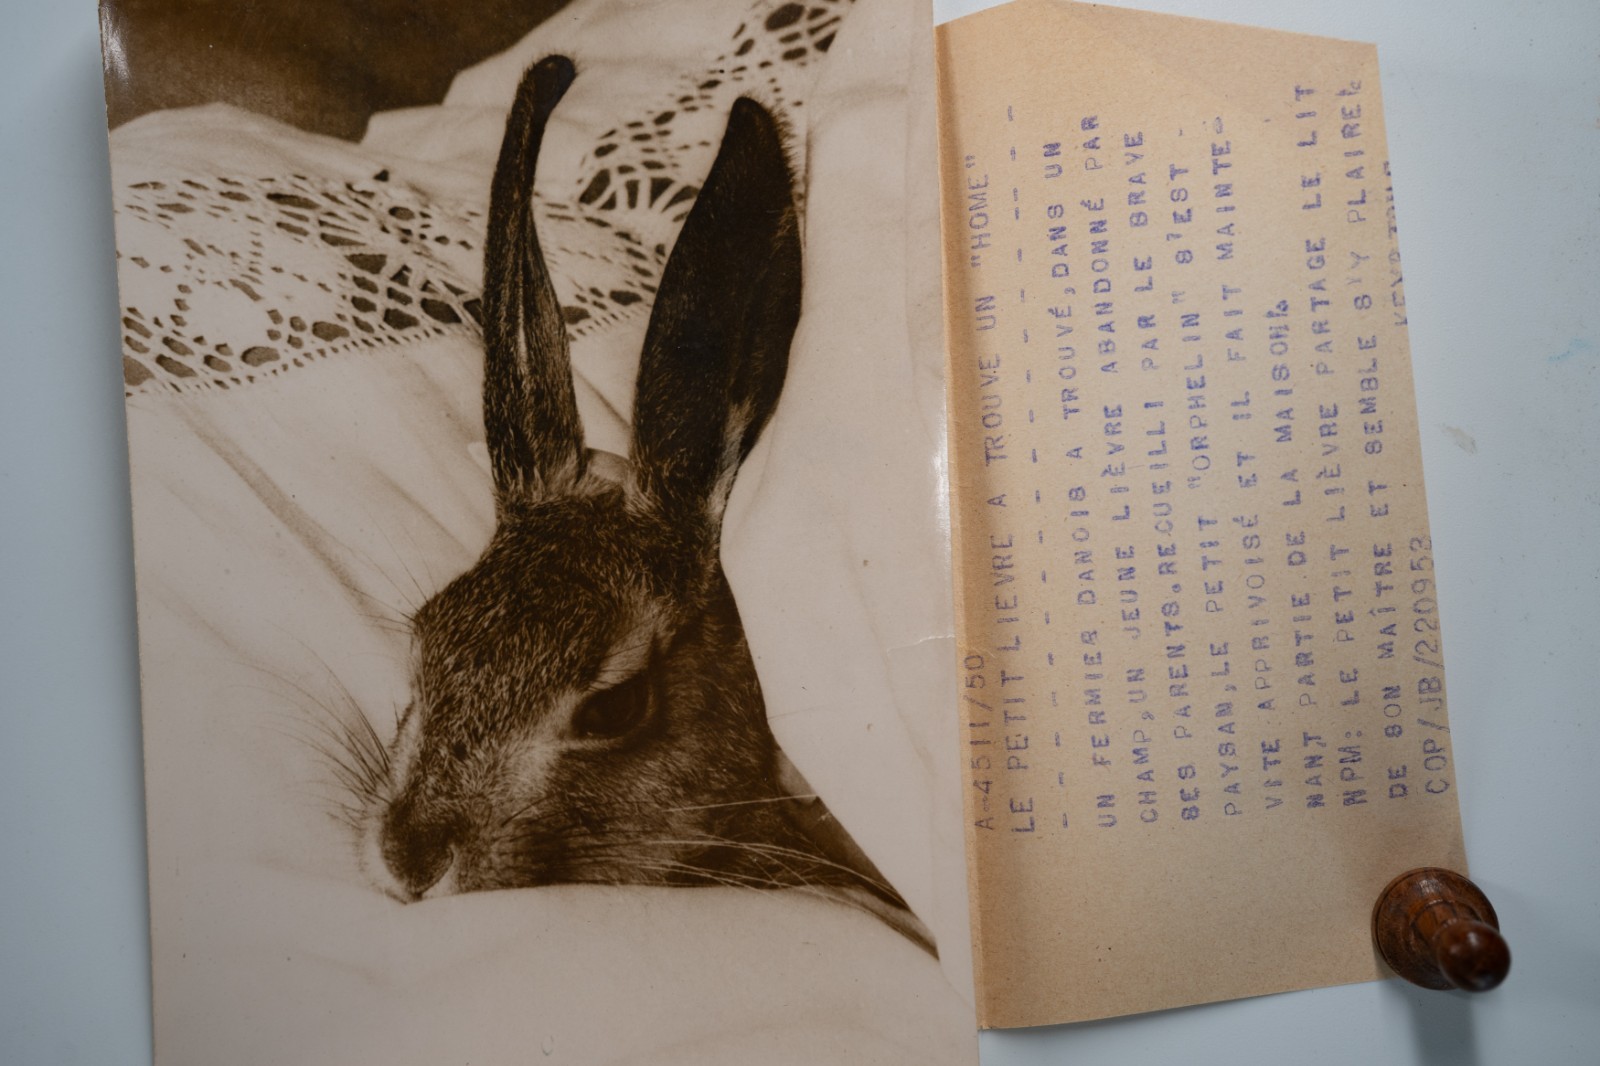 A-4511/50
LE PETIT LIEVRE A TROUVE UN "HOME"
UN FERMIER DANOIS A TROUVÉ,DANS UN
CHAMP,UN JEUNE LIÈVRE ABANDONNÉ PAR
SES PARENTS.RECUEILLI PAR LE BRAVE
PAYSAN,LE PETIT "ORPHELIN" S'EST
VITE APPRIVOISÉ ET IL FAIT MAINTE-
NANT PARTIE DE LA MAISON.
NPM: LE PETIT LIÈVRE PARTAGE LE LIT
DE SON MAÎTRE ET SEMBLE S'Y PLAIRE.
COP/JB/220952 KEYSTONE